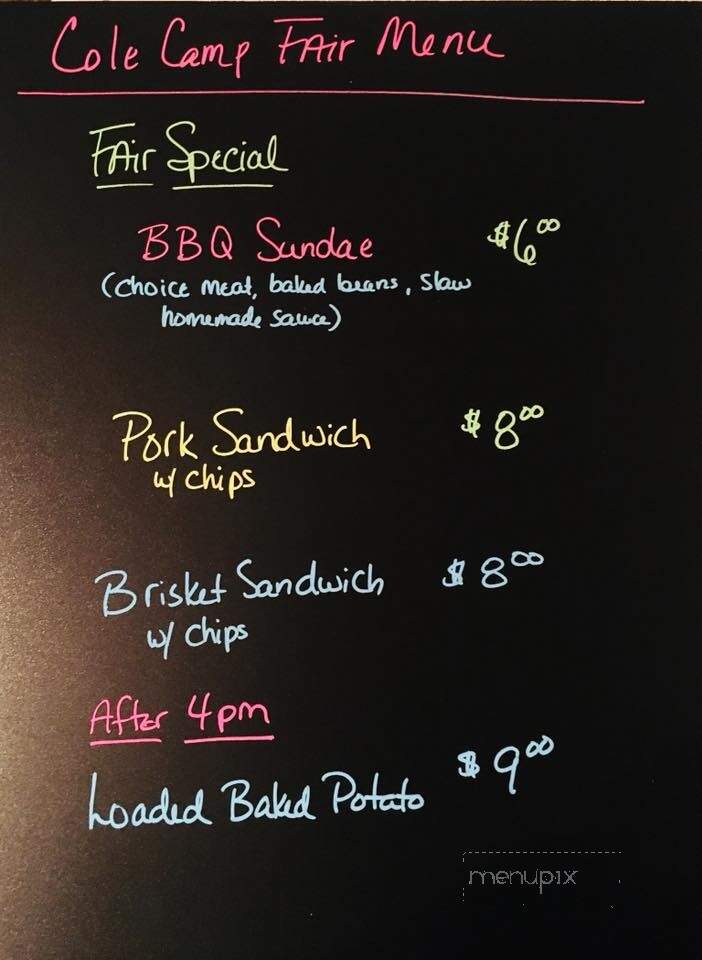 Cole Camp FAir Menu
FAir Special
BBQ Sundae $6.00
(choice meat, baked beans, slaw
homemade sauce)
Pork Sandwich $8.00
w/ chips
Brisket Sandwich $8.00
w/ chips
After 4pm
Loaded Baked Potato $9.00
menupix